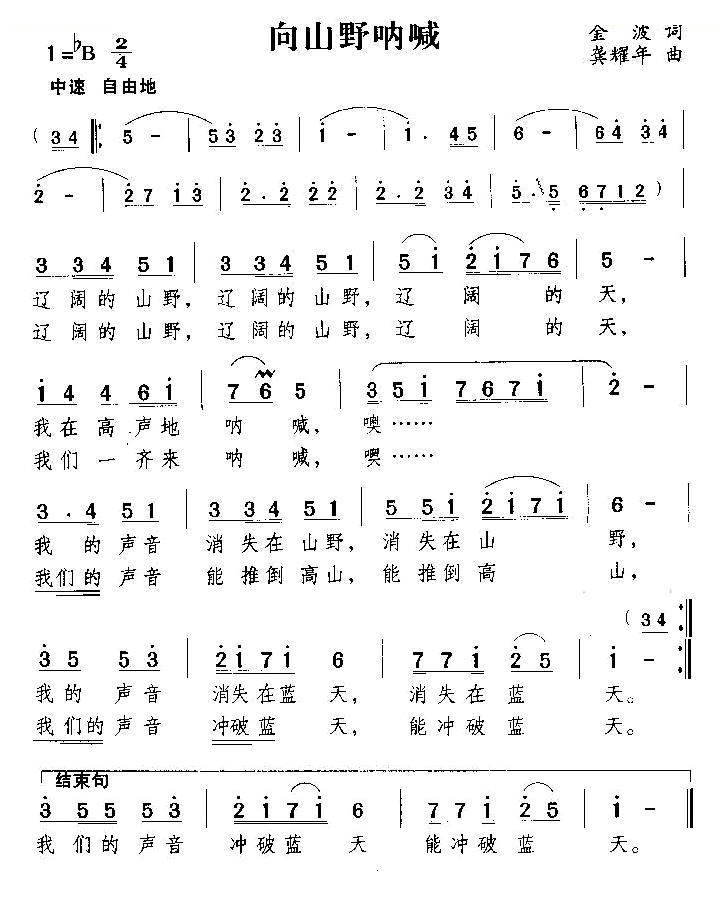 向山野呐喊
金波词
龚耀年曲
1=♭B 2/4
中速 自由地
( 3 4 |: 5 - | 5 3̇ 2̇ 3̇ | 1̇ - | 1̇ . 4 5 | 6 - | 6 4̇ 3̇ 4̇ |
2̇ - | 2̇ 7 1̇ 3̇ | 2̇ . 2̇ 2̇ 2̇ | 2̇ . 2̇ 3̇ 4̇ | 5 . 5 6 7 1 2 ) |
3 3 4 5 1 | 3 3 4 5 1 | 5 1̇ 2̇ 1̇ 7 6 | 5 - |
辽阔的山野,辽阔的山野,辽阔的天,
辽阔的山野,辽阔的山野,辽阔的天,
1̇ 4 4 6 1̇ | 7 6 5 | 3 5 1̇ 7 6 7 1̇ | 2̇ - |
我在高声地呐喊,噢……
我们一齐来呐喊,噢……
3 . 4 5 1 | 3 3 4 5 1 | 5 5 1̇ 2̇ 1̇ 7 1̇ | 6 - |
我的声音消失在山野,消失在山野,
我们的声音能推倒高山,能推倒高山,
( 3 4 :|
3̇ 5 5 3̇ | 2̇ 1̇ 7 1̇ 6 | 7 7 1̇ 2̇ 5 | 1̇ - :|
我的声音消失在蓝天,消失在蓝天。
我们的声音冲破蓝天,能冲破蓝天。
结束句
3̇ 5 5 5 3̇ | 2̇ 1̇ 7 1̇ 6 | 7 7 1̇ 2̇ 5 | 1̇ - ||
我们的声音冲破蓝天能冲破蓝天。